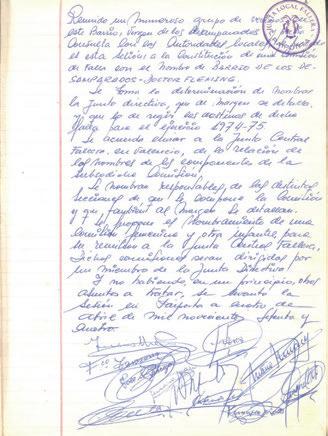 Reunido un numeroso grupo de vecinos de
este Barrio, Virgen de los Desamparados
Consulta con las Autoridades locales,
en esta sesión a la Constitución de una Comisión
de Falla con el nombre de BARRIO DE LOS DE-
SAMPARADOS - DOCTOR FLEMING.
Se tomó la determinación de nombrar
la Junta directiva, que al margen se detalla
y que ha de regir los destinos de dicha
falla para el ejercicio 1974-75
Se acuerda elevar a la Junta Central
Fallera, en Valencia, de la relación de
los nombres de los componentes de la
susodicha Comisión.
Se nombran responsables, de las distintas
Secciones de que se compone la Comisión
y que también al margen se detallan.
Se propone el nombramiento de una
Comisión femenina y otra infantil, para
su remisión a la Junta Central Fallera,
dichas comisiones serán dirigidas por
un miembro de la Junta Directiva.
Y no habiendo, en un principio, otros
asuntos a tratar, se levanta la
sesión en a cuatro de
Abril de mil novecientos setenta y
cuatro.